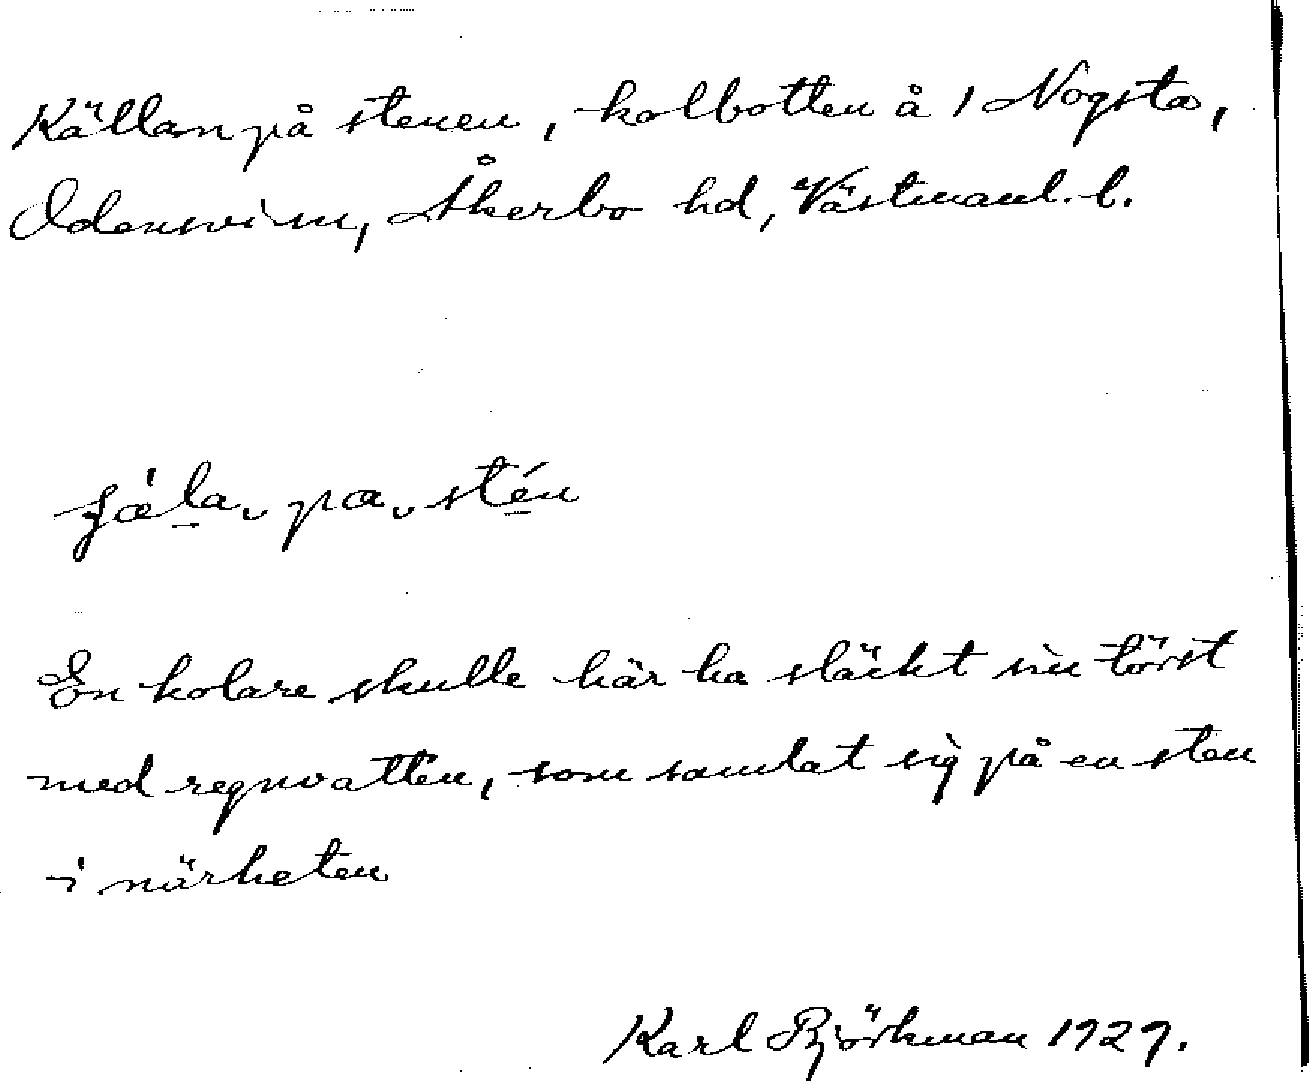 Källan på stenen, kolbotten å 1 Nogsta,
Odensvi sn, Åkerbo hd, Västmanl. l.
på stén
En kolare skulle här ha släckt sin törst
med regnvatten, som samlat sig på en sten
i närheten
Karl Björkman 1929.